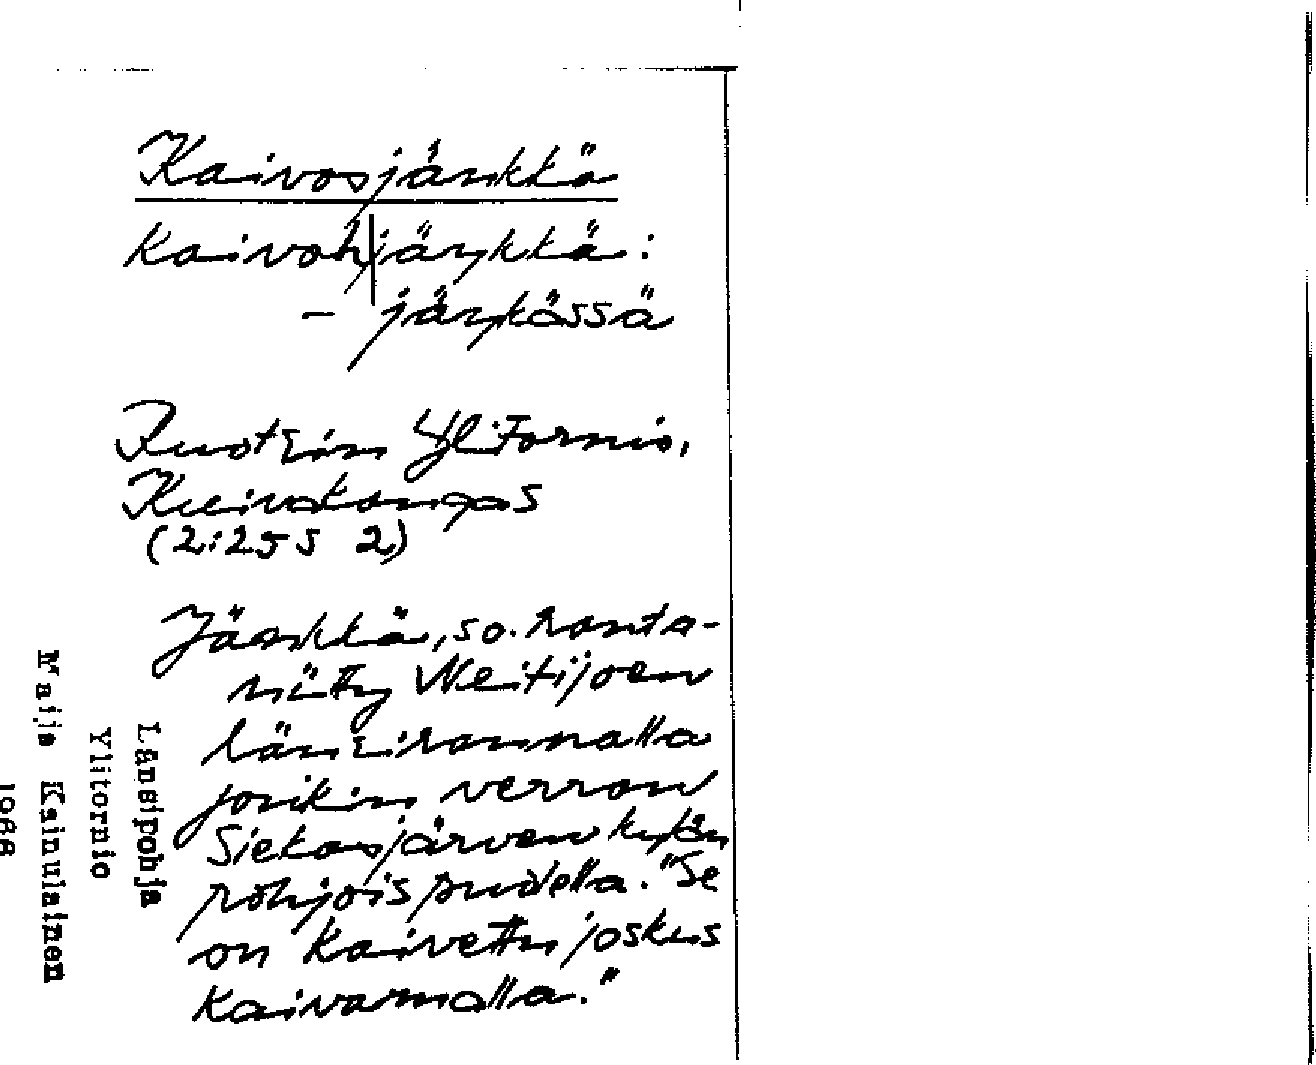 Kaivosjänkkä
kaivoh|jäŋkkä:
- jäŋkässä
Ruotsin Ylitornio,
Kuivakangas
(2:255 2)
Jänkkä, so. ranta-
niitty Neitijoen
länsirannalla
jonkin verran
Siekasjärven kylän
pohjoispuolella. "Se
on kaivettu joskus
kaivamalla."
Länsipohja
Ylitornio
Maija Kainulainen
1966